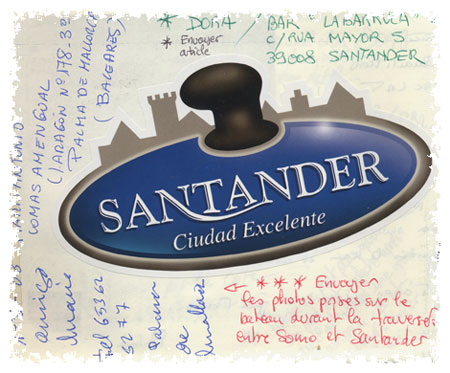 * DORA / BAR "
* Envoyer article
C/ RUA MAYOR 5
39008 SANTANDER
COMAS AMENGUAL
C/ARAGON Nº 178-3º
PALMA DE MALLORCA
(BALEARES)
SANTANDER
Ciudad Excelente
amigo
tel 65362
5277
de
← * * * Envoyer
les photos prises sur le
bateau durant la traversée
entre Somo et Santander